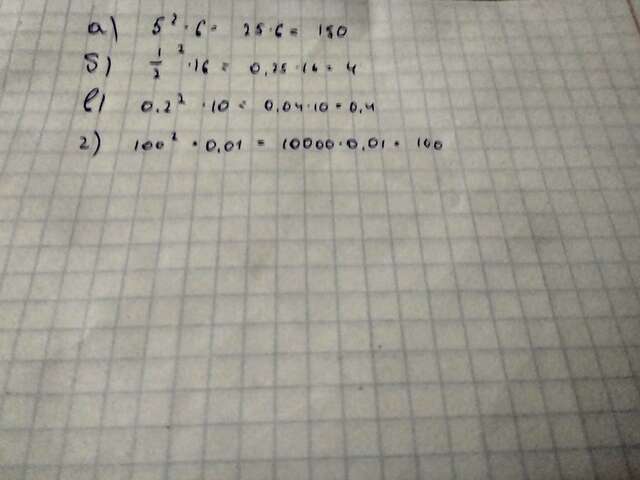 а) 5² · 6 = 25 · 6 = 150
б) 1/2² · 16 = 0,25 · 16 = 4
в) 0,2² · 10 = 0,04 · 10 = 0,4
г) 100² · 0,01 = 10000 · 0,01 = 100